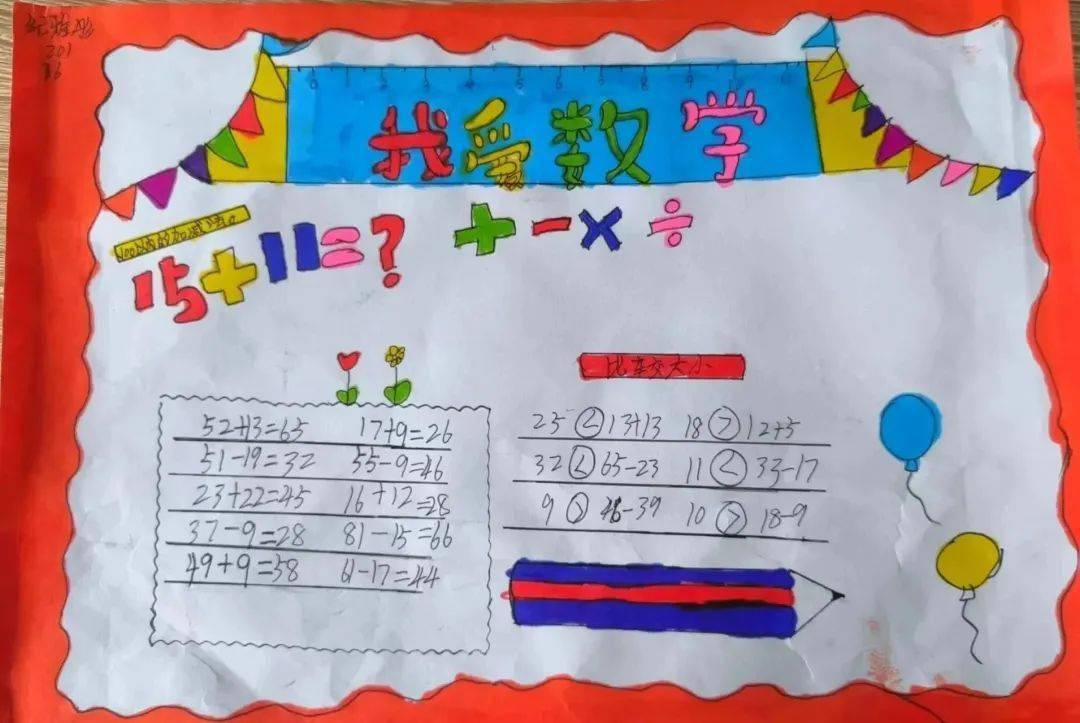 201
16
0 1 2 3 4 5 6 7 8 9
我爱数学
100以内的加减法。
15+11=? + - × ÷
52+13=65 17+9=26
51-19=32 55-9=46
23+22=45 16+12=28
37-9=28 81-15=66
49+9=58 61-17=44
比较大小
25<13+13 18>12+5
32<65-23 11<33-17
9> -39 10>18-9